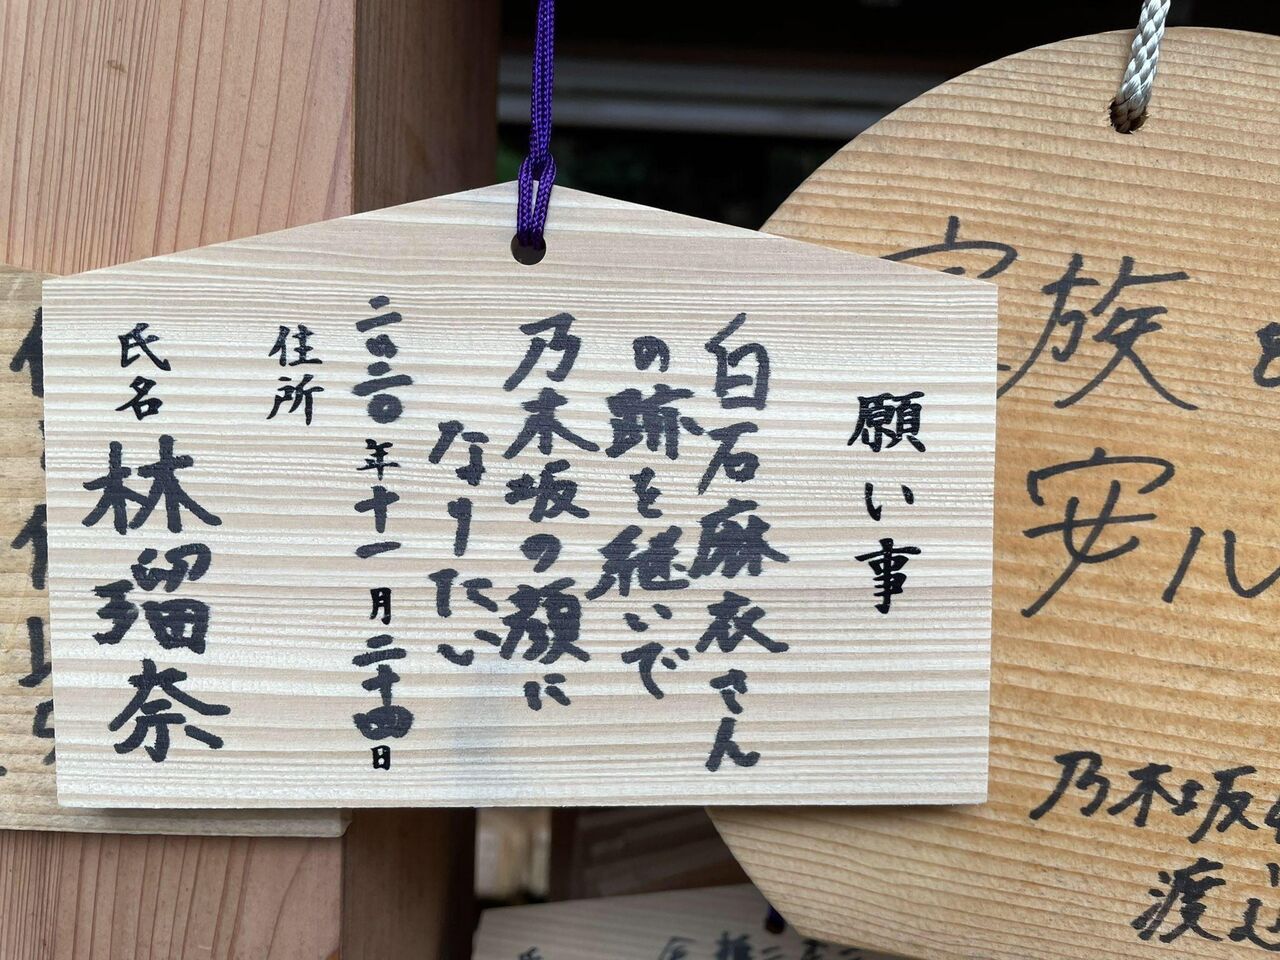 願い事
白石麻衣さん
の跡を継いで
乃木坂の顔に
なりたい
二〇二〇年十一月二十四日
住所
氏名 林瑠奈
家族と
安ル
乃木坂
渡辺